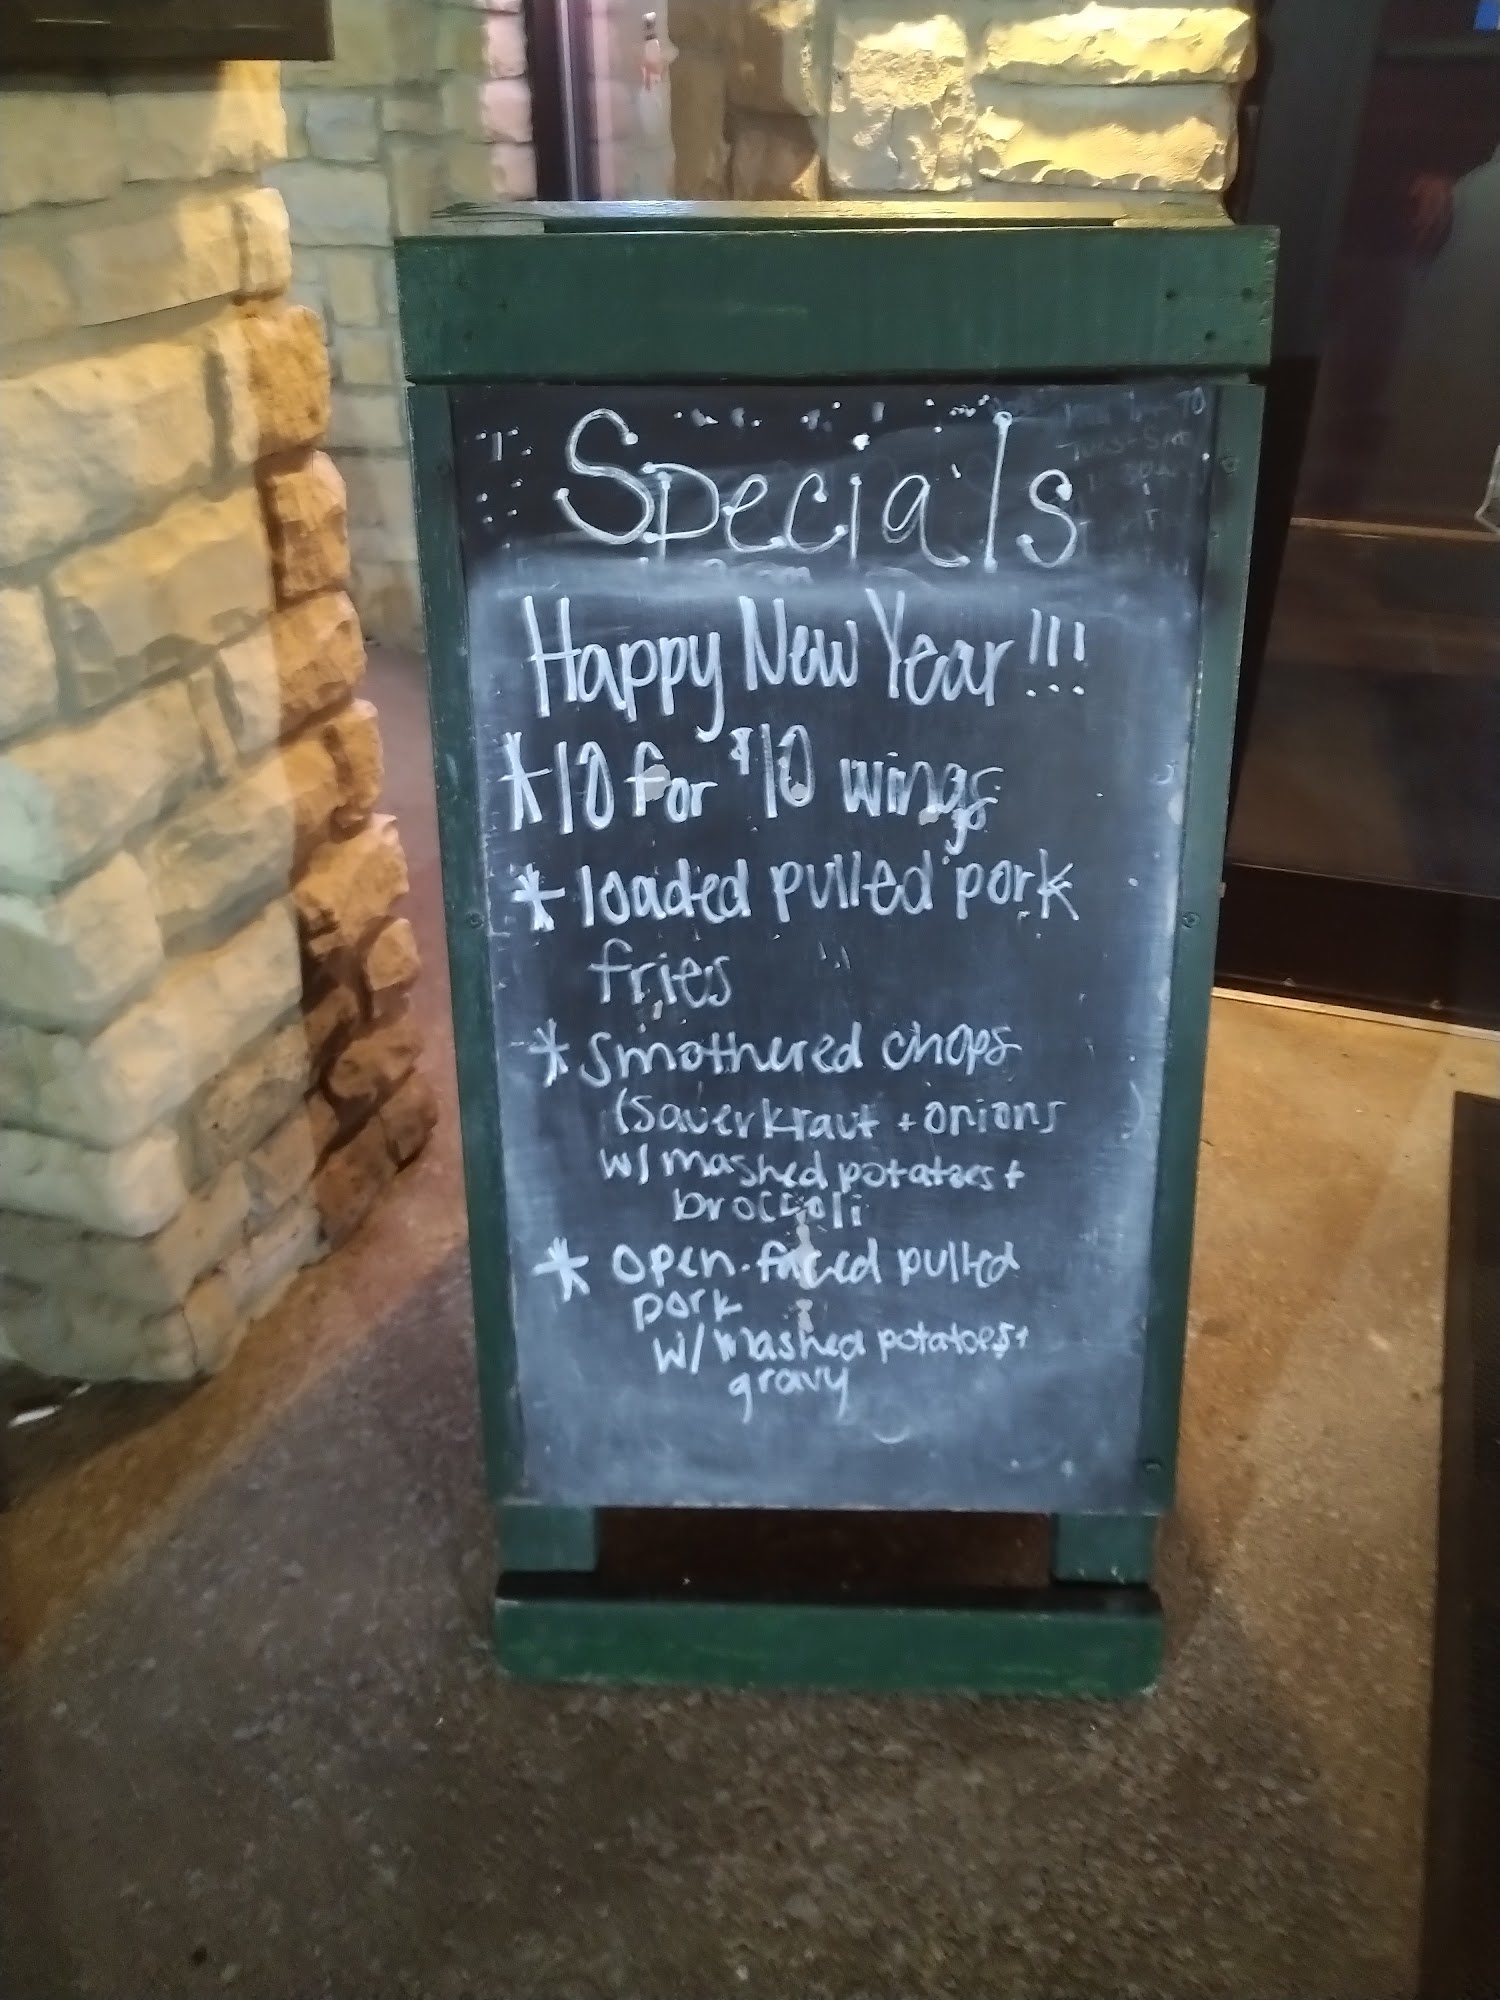 Specials
Happy New Year!!!
*10 for $10 wings
*loaded pulled pork
fries
*Smothered chops
(Sauerkraut + onions )
w/ mashed potatoes +
broccoli
* open-faced pulled
pork
w/ mashed potatoes+
gravy